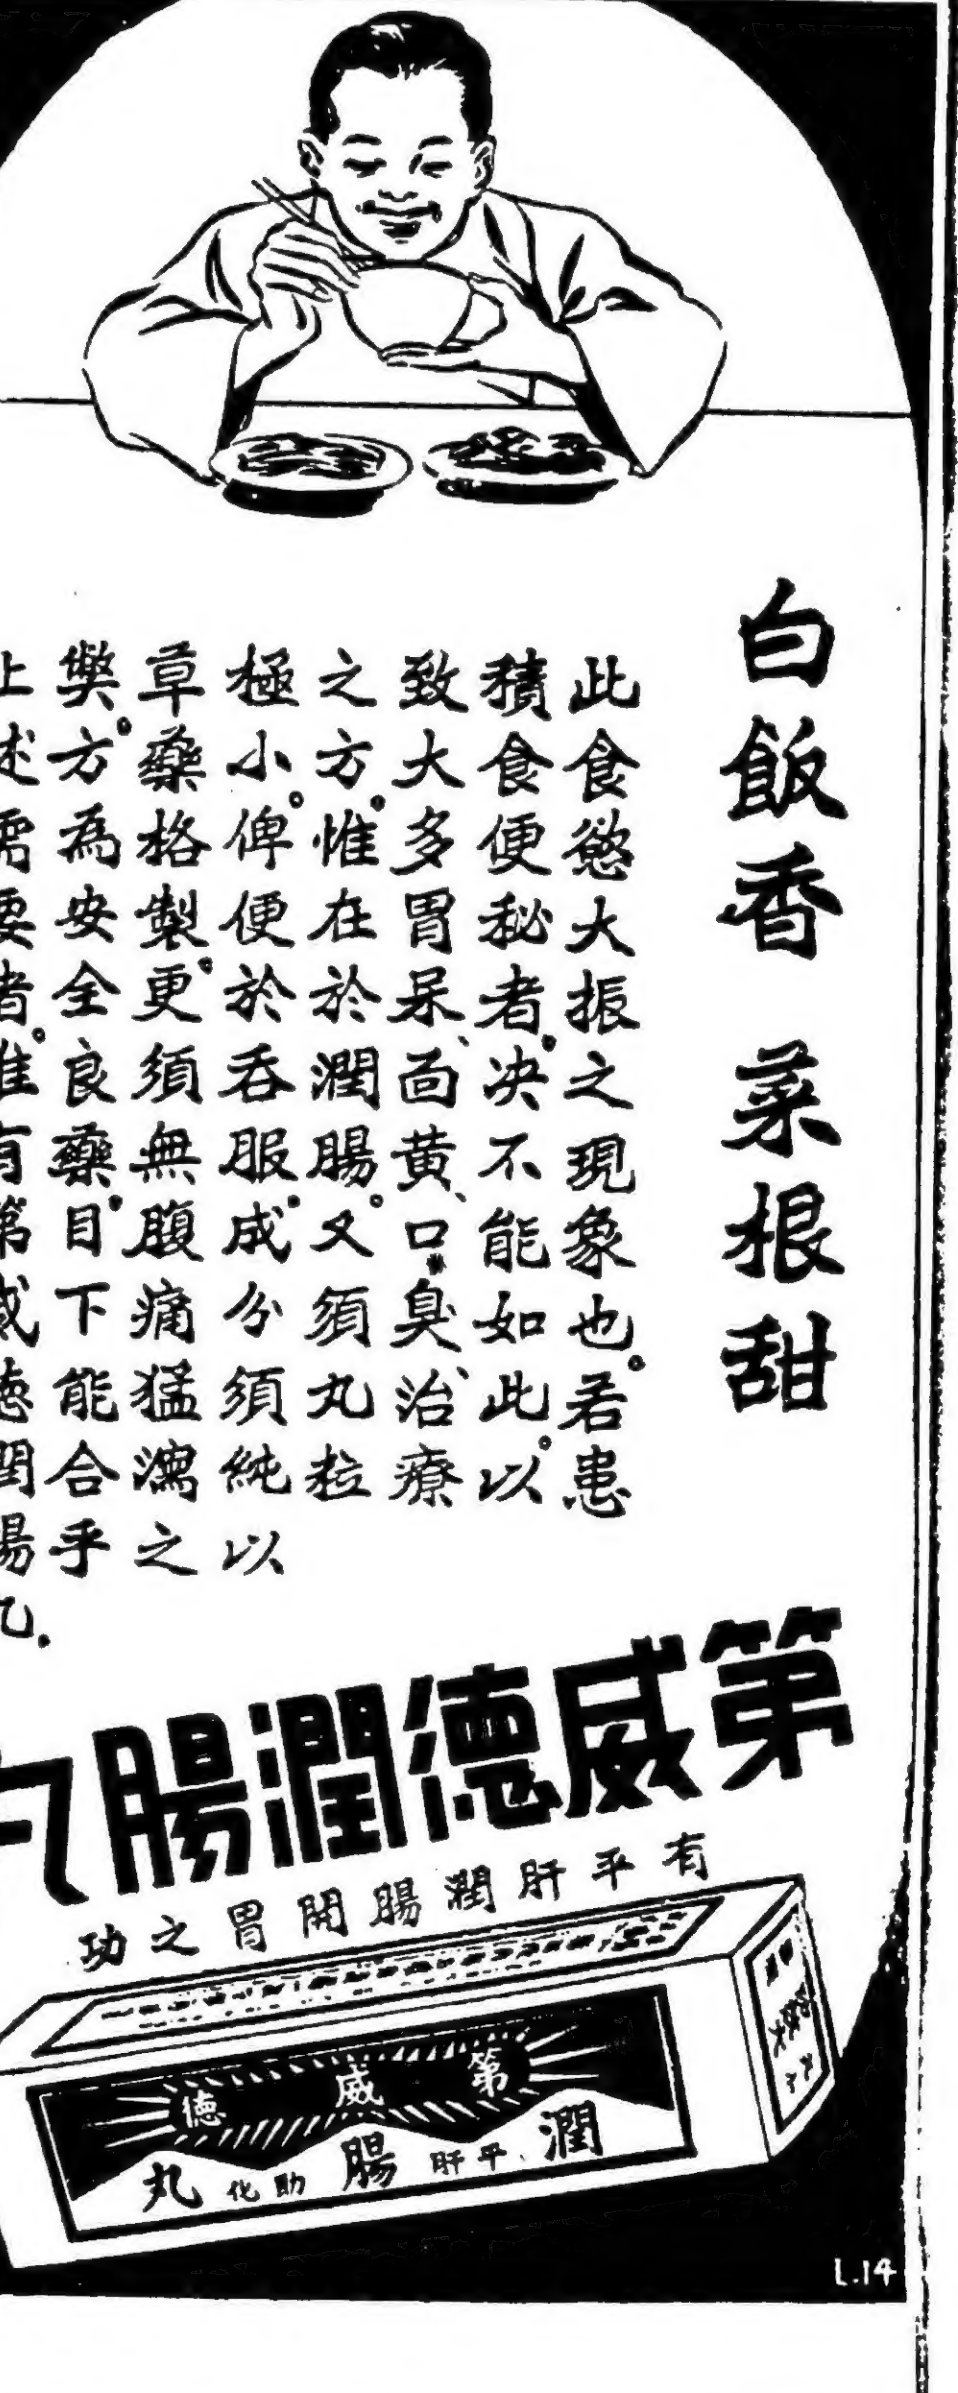 白飯香 菜根甜
此食慾大振之現象也。若患
積食便秘者。决不能如此。以
致大多胃呆、面黄、口臭、治療
之方。惟在於潤腸。又須丸粒
極小。俾便於吞服。成分須純以
草藥格製。更須無腹痛猛瀉之
弊。方為安全良藥。目下能合乎
上述需要者。惟有第威德潤腸丸.
第威德潤腸丸
有平肝潤腸開胃之功
第威德
潤平肝腸助化丸
L.14